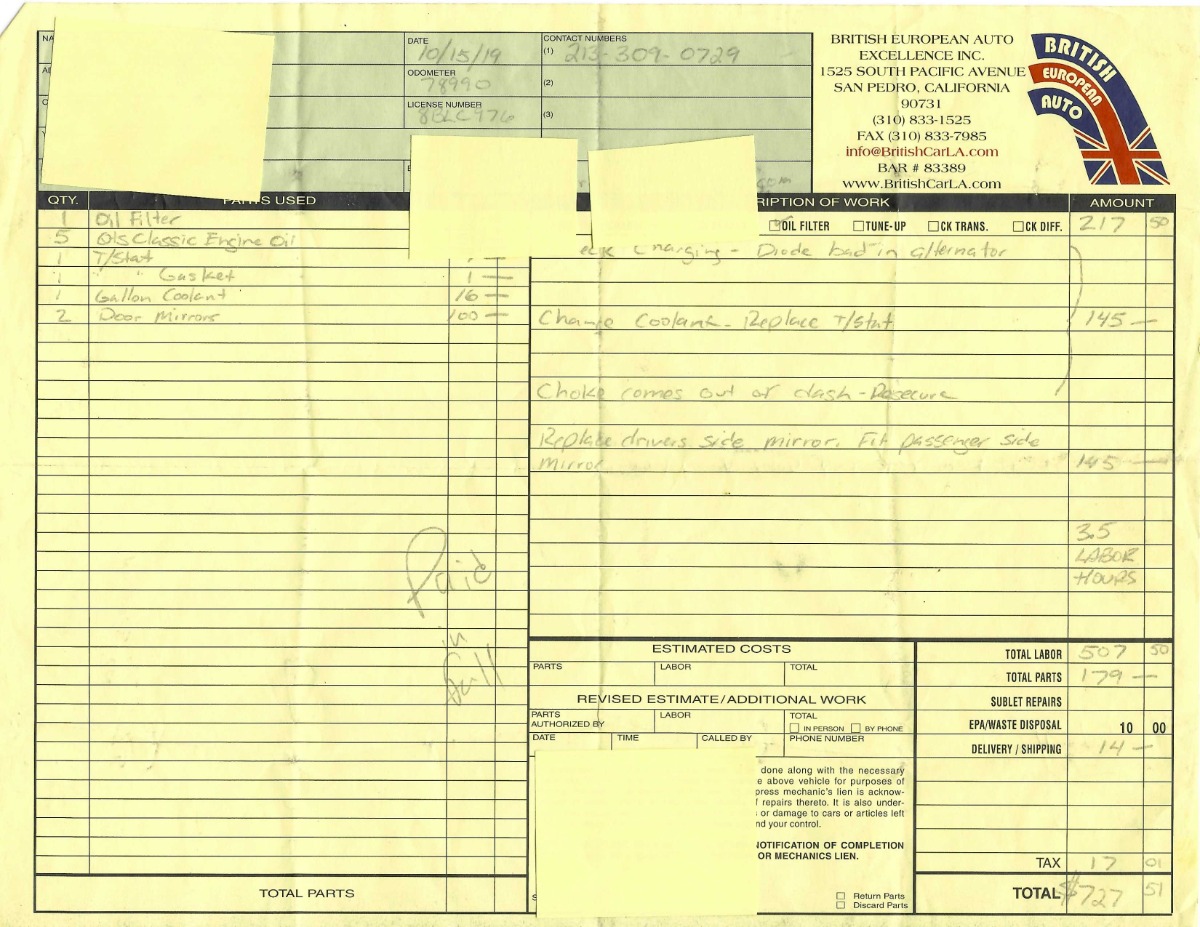 NA
DATE
10/15/19
CONTACT NUMBERS
(1) 213-309-0729
ODOMETER
78990
(2)
LICENSE NUMBER
(3)
BRITISH EUROPEAN AUTO
EXCELLENCE INC.
1525 SOUTH PACIFIC AVENUE
SAN PEDRO, CALIFORNIA
90731
(310) 833-1525
FAX (310) 833-7985
info@BritishCarLA.com
BAR # 83389
www.BritishCarLA.com
BRITISH
EUROPEAN
AUTO
QTY. PARTS USED
1 Oil Filter
5 Qts Classic Engine Oil
1 T/Stat
1 " " Gasket 1 —
1 Gallon Coolant 16 —
2 Door Mirrors 100 —
Paid
in
full
TOTAL PARTS
RIPTION OF WORK AMOUNT
OIL FILTER TUNE-UP CK TRANS. CK DIFF. 217 50
Charging - Diode bad in alternator
Change Coolant - Replace T/Stat 145 —
Choke comes out of dash - Resecure
Replace drivers side mirror. Fit passenger side
mirror 145 —
3.5
LABOR
HOURS
ESTIMATED COSTS
PARTS LABOR TOTAL
REVISED ESTIMATE/ADDITIONAL WORK
PARTS LABOR TOTAL
AUTHORIZED BY IN PERSON BY PHONE
DATE TIME CALLED BY PHONE NUMBER
done along with the necessary
e above vehicle for purposes of
press mechanic's lien is acknow-
f repairs thereto. It is also under-
or damage to cars or articles left
nd your control.
NOTIFICATION OF COMPLETION
OR MECHANICS LIEN.
Return Parts
Discard Parts
TOTAL LABOR 507 50
TOTAL PARTS 179 —
SUBLET REPAIRS
EPA/WASTE DISPOSAL 10 00
DELIVERY / SHIPPING 14 —
TAX 17 01
TOTAL $727 51